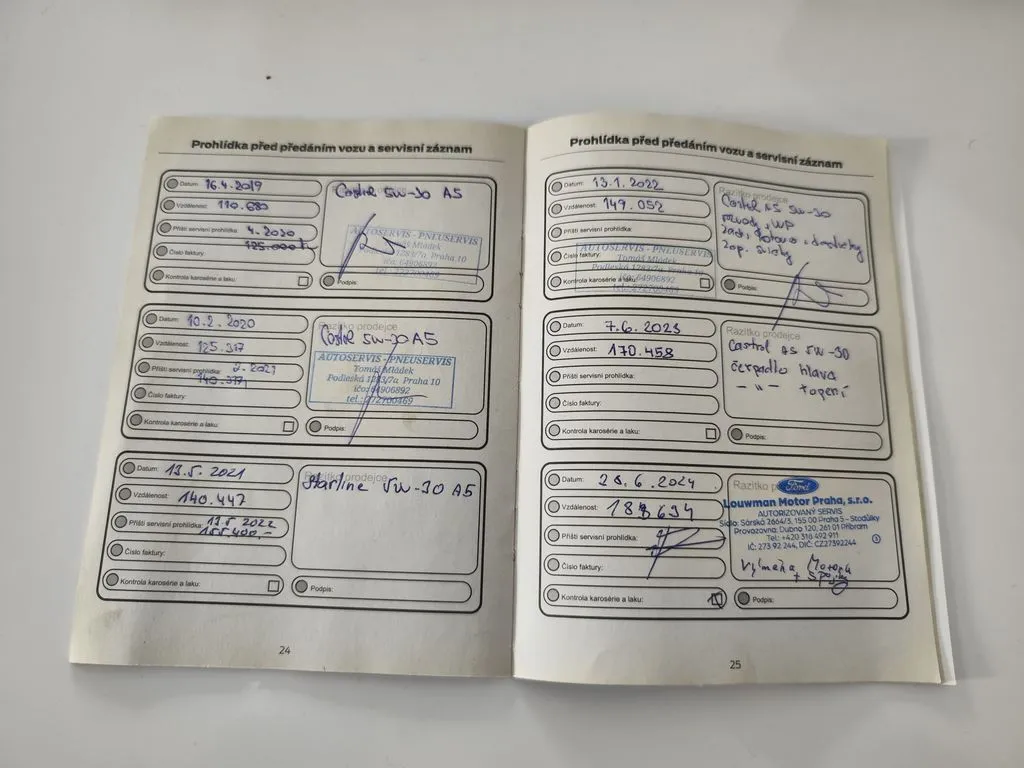 Prohlídka před předáním vozu a servisní záznam
Datum: 16.4.2019
Vzdálenost: 110.680
Příští servisní prohlídka: 4.2020
125.000
Číslo faktury:
Kontrola karosérie a laku:
Castrol 5W-30 A5
AUTOSERVIS - PNEUSERVIS
Tomáš Mládek
Podleská 1283/7a Praha 10
ičo: 64906892
tel.: 272700469
Podpis:
Datum: 10.2.2020
Vzdálenost: 125.317
Příští servisní prohlídka: 2.2021
140.317
Číslo faktury:
Kontrola karosérie a laku:
Razítko prodejce
Castrol 5W-30 A5
AUTOSERVIS - PNEUSERVIS
Tomáš Mládek
Podleská 1283/7a Praha 10
ičo: 64906892
tel.: 272700469
Podpis:
Datum: 13.5.2021
Vzdálenost: 140.447
Příští servisní prohlídka: 13.5.2022
155.400,-
Číslo faktury:
Kontrola karosérie a laku:
Razítko prodejce
Starline 5W-30 A5
Podpis:
24
Prohlídka před předáním vozu a servisní záznam
Datum: 13.1.2022
Vzdálenost: 149.052
Příští servisní prohlídka:
Číslo faktury:
Kontrola karosérie a laku:
AUTOSERVIS - PNEUSERVIS
Tomáš Mládek
Podleská 1283/7a Praha 10
ičo: 64906892
tel.: 272700469
Razítko prodejce
Castrol A5 5W-30
rozvody, WP
zad. kotouče, destičky
zap. svíčky
Podpis:
Datum: 7.6.2023
Vzdálenost: 170.458
Příští servisní prohlídka:
Číslo faktury:
Kontrola karosérie a laku:
Razítko prodejce
Castrol A5 5W-30
čerpadlo hlava
- " - topení
Podpis:
Datum: 28.6.2024
Vzdálenost: 188634
Příští servisní prohlídka:
Číslo faktury:
Kontrola karosérie a laku:
Razítko
Ford
Louwman Motor Praha, s.r.o.
AUTORIZOVANÝ SERVIS
Sídlo: Sárská 2664/3, 155 00 Praha 5 - Stodůlky
Provozovna: Dubno 120, 261 01 Příbram
Tel.: +420 318 492 911
IČ: 273 92 244, DIČ: CZ27392244
3
Výměna Motoru
+ Spojky
Podpis:
25